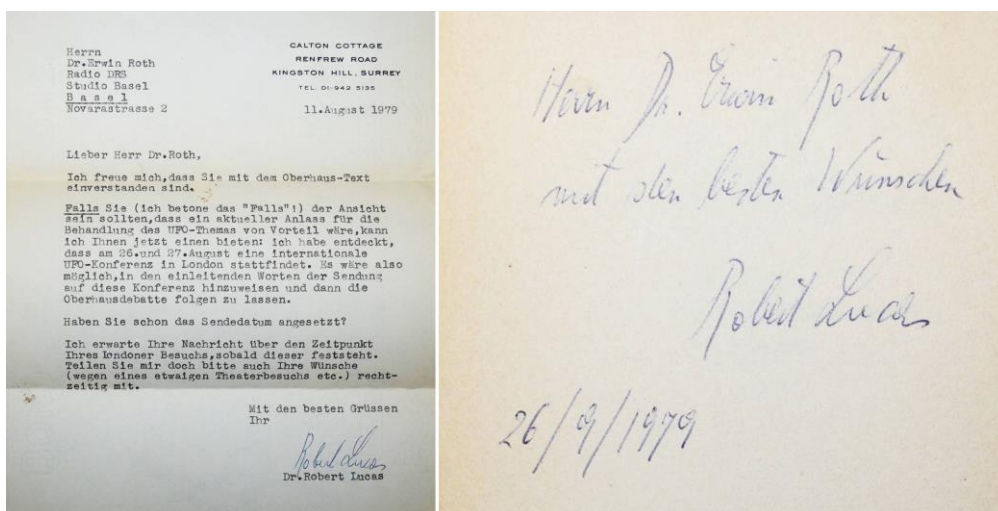 Herrn
Dr.Erwin Roth
Radio DRS
Studio Basel
B a s e l
Novarastrasse 2
CALTON COTTAGE
RENFREW ROAD
KINGSTON HILL, SURREY
TEL. 01-942 5135
11.August 1979
Lieber Herr Dr.Roth,
Ich freue mich,dass Sie mit dem Oberhaus-Text
einverstanden sind.
Falls Sie (ich betone das "Falls"!) der Ansicht
sein sollten,dass ein aktueller Anlass für die
Behandlung des UFO-Themas von Vorteil wäre,kann
ich Ihnen jetzt einen bieten: ich habe entdeckt,
dass am 26.und 27.August eine internationale
UFO-Konferenz in London stattfindet. Es wäre also
möglich,in den einleitenden Worten der Sendung
auf diese Konferenz hinzuweisen und dann die
Oberhausdebatte folgen zu lassen.
Haben Sie schon das Sendedatum angesetzt?
Ich erwarte Ihre Nachricht über den Zeitpunkt
Ihres londoner Besuchs,sobald dieser feststeht.
Teilen Sie mir doch bitte auch Ihre Wünsche
(wegen eines etwaigen Theaterbesuchs etc.) recht-
zeitig mit.
Mit den besten Grüssen
Ihr
Robert Lucas
Dr.Robert Lucas
Herrn Dr. Erwin Roth
mit den besten Wünschen
Robert Lucas
26/9/1979